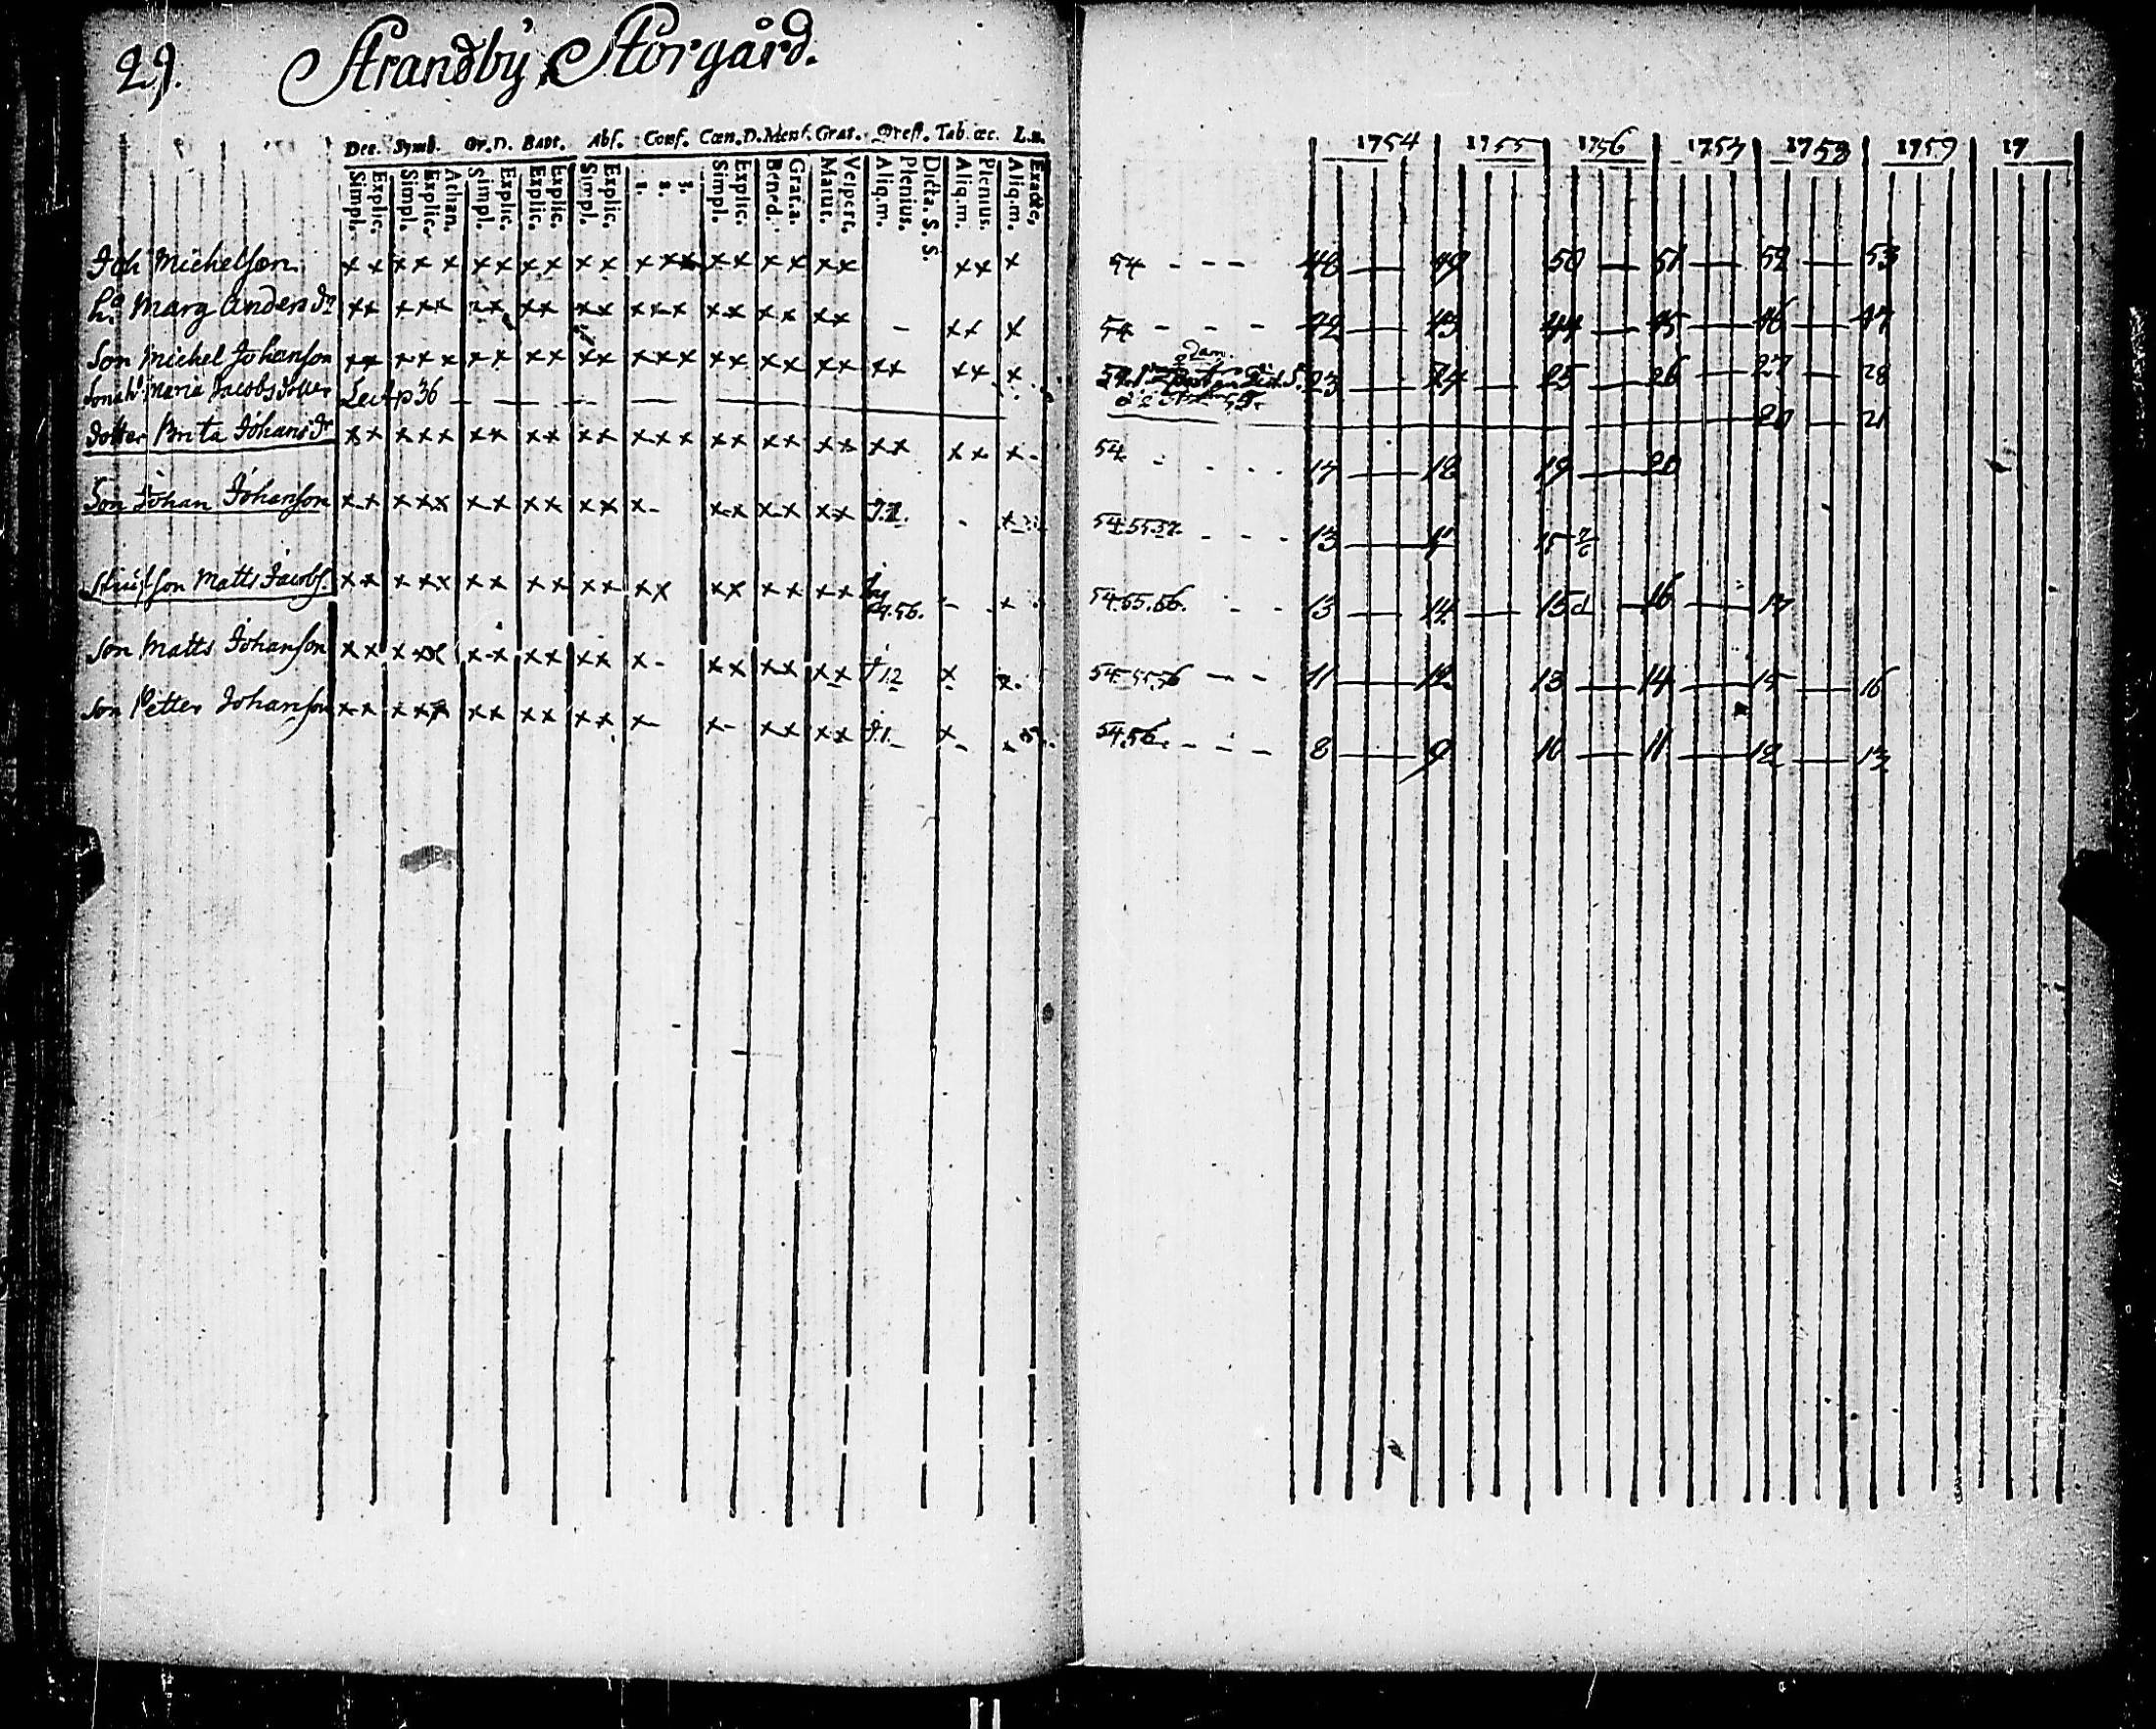 29. Strandby, Storgård.
Dec. Symb. Or.D. Bapt. Abs. Conf. Cœn.D. Mens. Grat. Tab. œc. L.n.
Simpl. Explic. Simpl. Explic. Athan. Simpl. Explic. Explic. Explic. Simpl. Explic. 1. 2. 3. Simpl. Explic. Bened. Grat.a. Matut. Vespert. Aliq.m. Plenius. Dicta. S. S. Aliq.m. Plenius. Aliq.m. Exacte.
1754 1755 1756 1757 1758 1759 17
Joh Michelson x x x x x x x x x x x x x x x x x x x x x x x 54 - - - 48 — 49 50 — 51 — 52 — 53
h.a Marg Anders dr x x x x x x x x x x x x x x x x x x x x - x x x 54 - - - 42 — 43 44 — 45 — 46 — 47
Son Michel Johanson x x x x x x x x x x x x x x x x x x x x x x x x x 23 — 24 — 25 — 26 — 27 — 28
Maria Jacobsdotter p 36 — — — — — — 20 — 21
dotter Brita Johans dr x x x x x x x x x x x x x x x x x x x x x x x x x - 54 - - - - 17 — 18 19 — 20
Son Johan Johanson x x x x x x x x x x x x - x x x x x x - x 54.55.57. - - - 13 — 15
son Matts Jacobs. x x x x x x x x x x x x x x x x x x x - x 54.55.56. - - - 13 — 14 — 15 — 16 — 17
Son Matts Johanson x x x x x x x x x x x x - x x x x x x x x. 54.55.56 - - - 11 — 12 13 — 14 — 15 — 16
Son Petter Johanson x x x x x x x x x x x x - x - x x x x x x 54.56. - - - 8 — 9 10 — 11 — 12 — 13